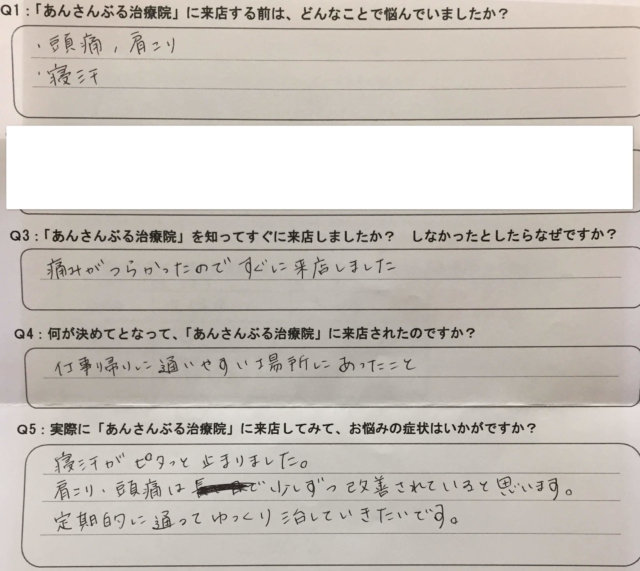 Q1:「あんさんぶる治療院」に来店する前は、どんなことで悩んでいましたか？
・頭痛，肩こり
・寝汗
Q3:「あんさんぶる治療院」を知ってすぐに来店しましたか？　しなかったとしたらなぜですか？
痛みがつらかったので すぐに来店しました
Q4:何が決めてとなって、「あんさんぶる治療院」に来店されたのですか？
仕事帰りに通いやすい場所にあったこと
Q5:実際に「あんさんぶる治療院」に来店してみて、お悩みの症状はいかがですか？
寝汗がピタッと止まりました。
肩こり・頭痛は で少しずつ改善されていると思います。
定期的に通ってゆっくり治していきたいです。